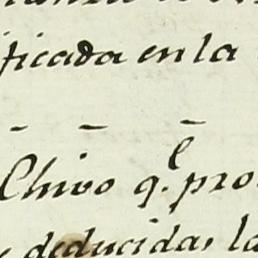 ficada en la
Chivo q.e pro
deducidas la